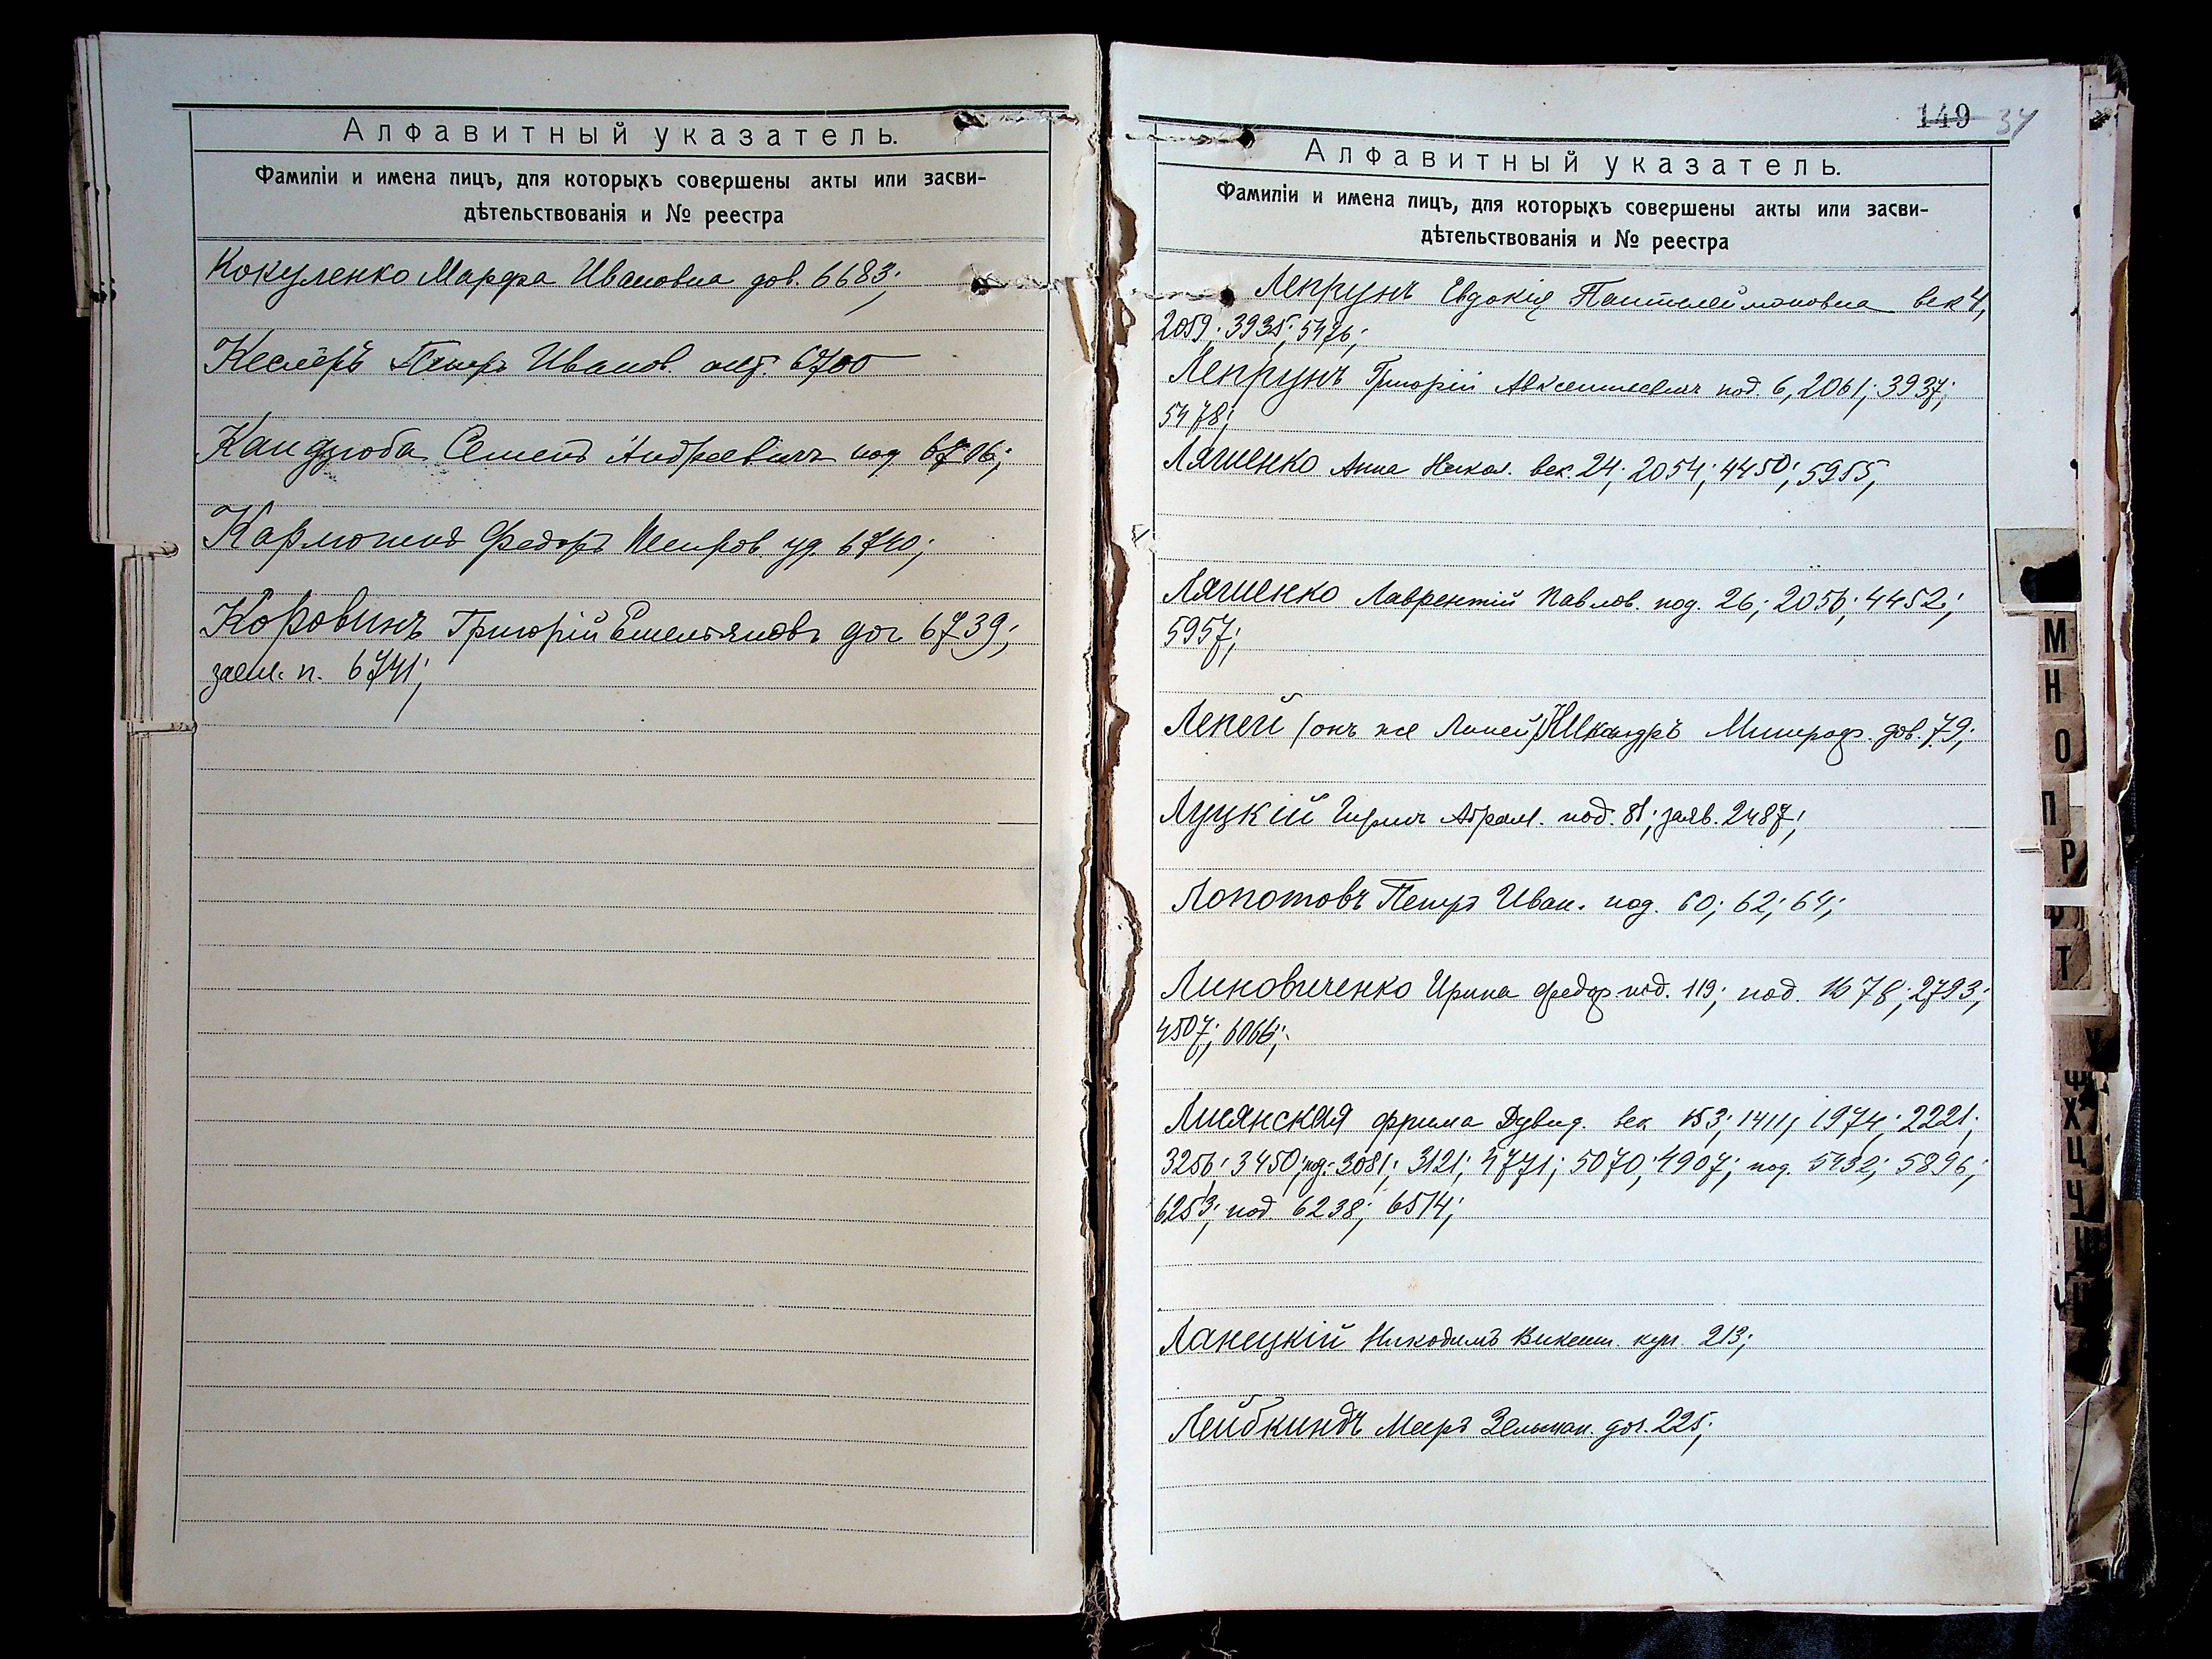 Алфавитный указатель.
Фамиліи и имена лицъ, для которыхъ совершены акты или засви-
дѣтельствованія и № реестра
Кокуленко Марфа Ивановна дов. 6683;
Кеслеръ Петръ Иванов. 6700
Кандзюба Семенъ Андреевичъ под. 6706;
Федоръ Петров. 6740;
Коровинъ Григорій Емельяновъ дог. 6739;
п. 6741;
149 34
Алфавитный указатель.
Фамиліи и имена лицъ, для которыхъ совершены акты или засви-
дѣтельствованія и № реестра
Лепрунъ Евдокія Пантелеймоновна век 4,
2059; 3935; 5476;
Лепрунъ Григорій Авксентьевичъ под. 6, 2061; 3937;
5478;
Лягиенко Анна Никол. век. 24; 2054; 4450; 5955;
Лягиенко Лаврентій Павлов. под. 26; 2056; 4452;
5957;
Лепей (онъ же Липей) Никандръ Митроф. дов. 79;
Луцкій Абрам. под. 81; заяв. 2487;
Лопотовъ Петръ Иван. под. 60; 62; 64;
Линовиченко Ирина Федор. под. 119; под. 1678; 2793;
4507; 6066;
Лисянская Фрима Дувид. век 153; 1411; 1974; 2221;
3256; 3450; под. 3081; 3121; 4771; 5070; 4907; под. 5432; 5896;
6253; под. 6238; 6514;
Ланецкій Никодимъ Викент. куп. 213;
Лейбкиндъ Мееръ Зельман. дог. 225;
М
Н
О
П
Р
Т
У
Ф
Х
Ц
Ч